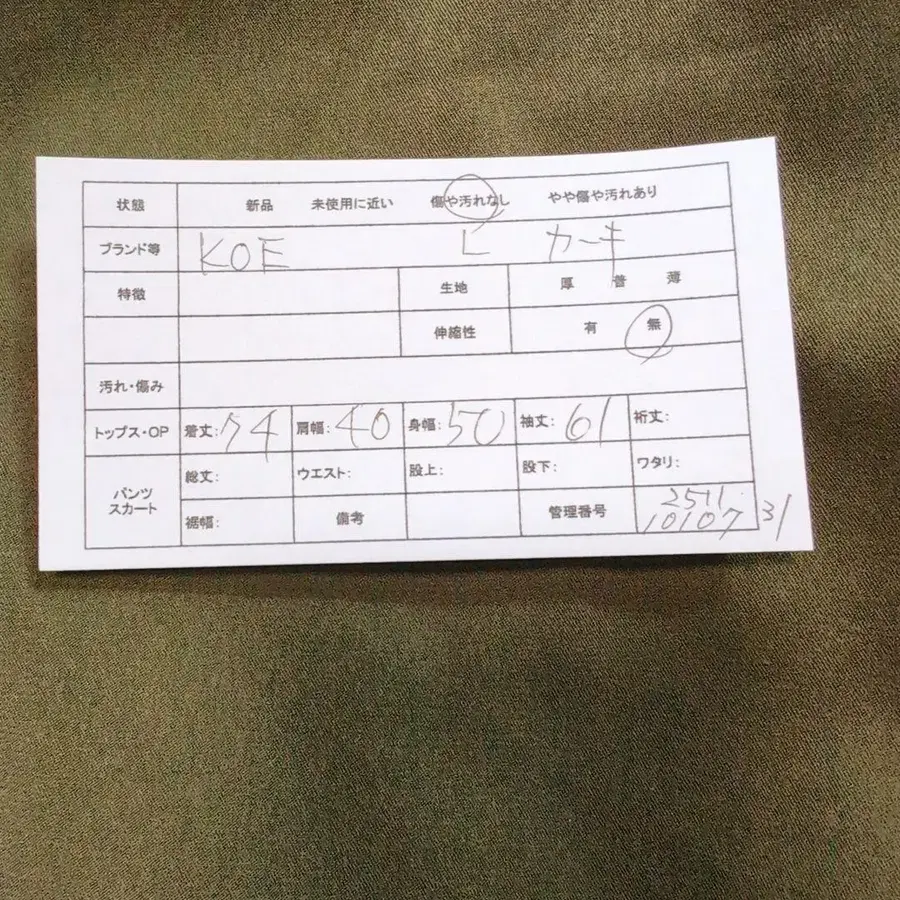 状態 新品 未使用に近い 傷や汚れなし やや傷や汚れあり
ブランド等 KOE L カーキ
特徴 生地 厚 普 薄
伸縮性 有 無
汚れ・傷み
トップス・OP 着丈: 74 肩幅: 40 身幅: 50 袖丈: 61 裄丈:
パンツ スカート 総丈: ウエスト: 股上: 股下: ワタリ:
裾幅: 備考 管理番号 2511
10107 31